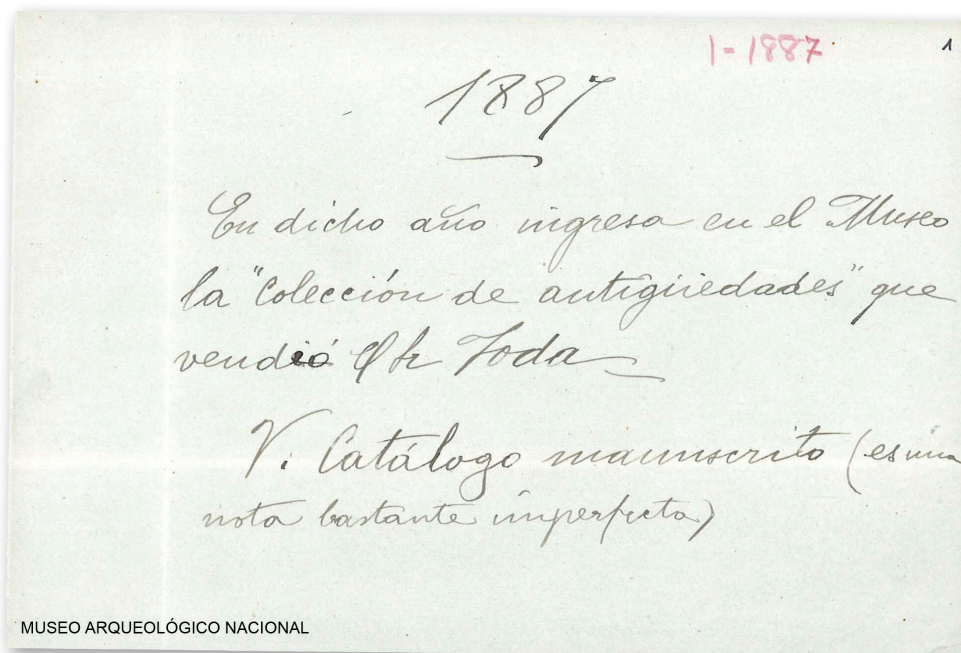 1-1887
1
1887
En dicho año ingresa en el Museo
la "Colección de antigüedades" que
vendió Toda
V. Catálogo manuscrito (es una
nota bastante imperfecta)
MUSEO ARQUEOLÓGICO NACIONAL